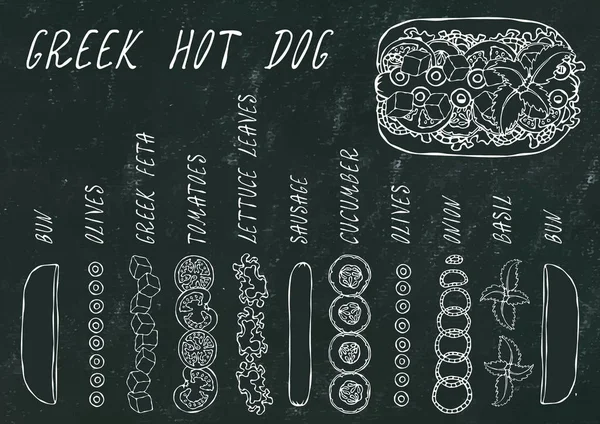 GREEK HOT DOG
BUN
OLIVES
GREEK FETA
TOMATOES
LETTUCE LEAVES
SAUSAGE
CUCUMBER
OLIVES
ONION
BASIL
BUN